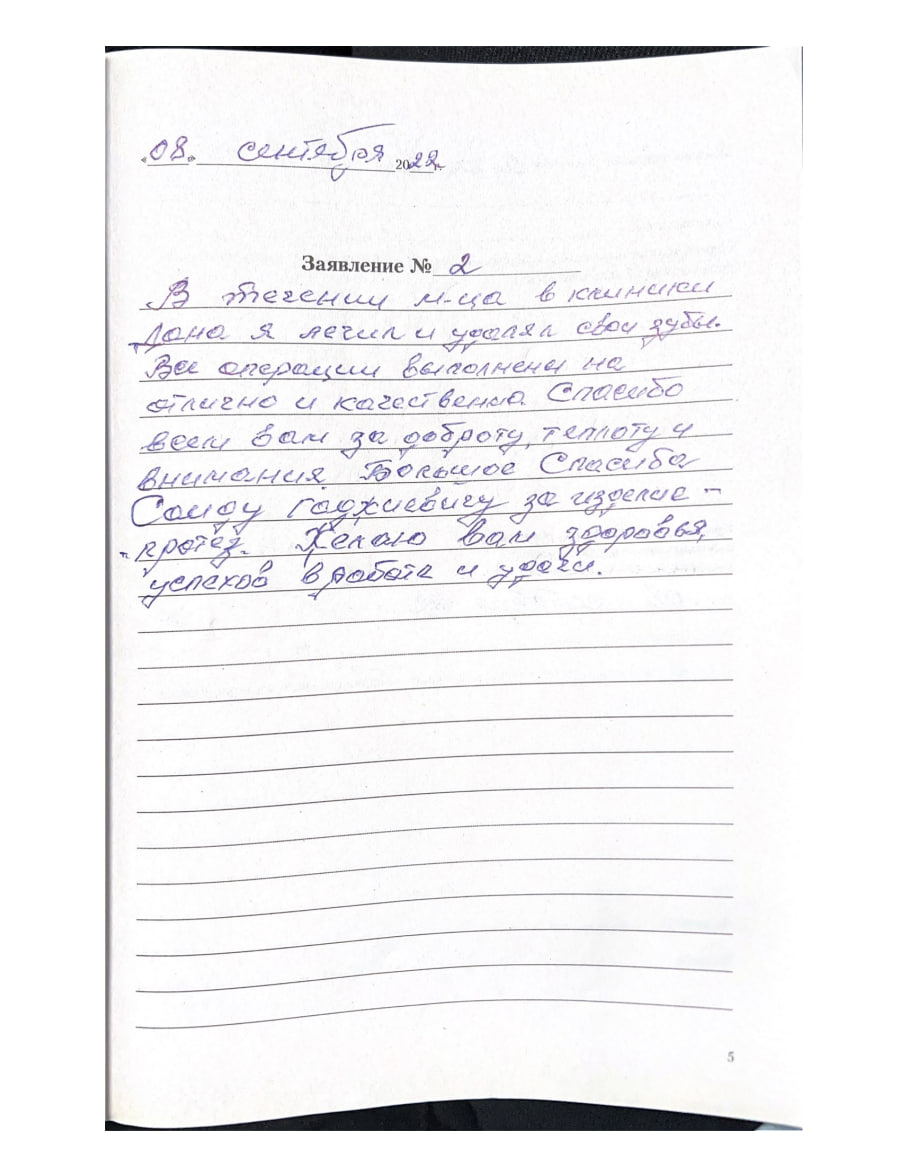 «08» сентября 2022 г.
Заявление № 2
В течении м-ца в клиники
Дана я лечил и удалял свои зубы.
Все операции выполнены на
отлично и качественно. Спасибо
всем вам за доброту, теплоту и
внимания. Большое Спасиба
Саиду Гаджиевичу за изделие –
"протез. Желаю Вам здоровья,
успехов в работе и удачи.
5